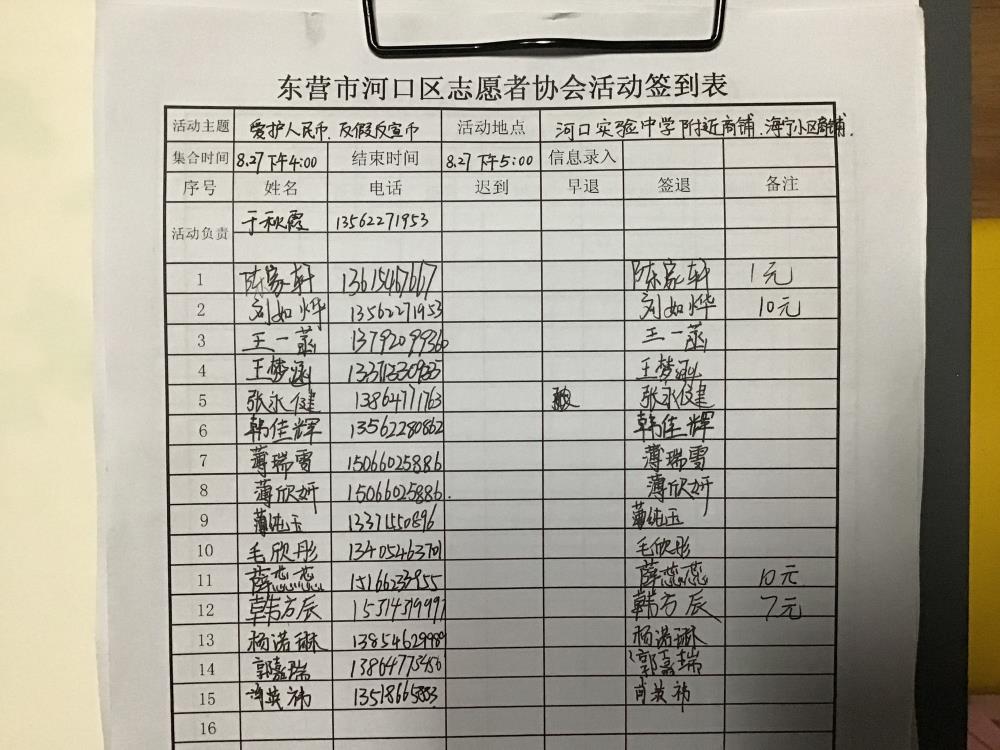 东营市河口区志愿者协会活动签到表
活动主题 爱护人民币.反假反宣币 活动地点 河口实验中学附近商铺.海宁小区商铺.
集合时间 8.27下午4:00 结束时间 8.27下午5:00 信息录入
序号 姓名 电话 迟到 早退 签退 备注
活动负责 于秋霞 13562271953
1 陈家轩 陈家轩 1元
2 刘如烨 13562271953 刘如烨 10元
3 王一菡 13792099360 王一菡
4 王梦涵 王梦涵
5 张永健 13864771763 张永健
6 韩佳辉 13562280862 韩佳辉
7 薄瑞雪 15066025886 薄瑞雪
8 薄欣妍 15066025886. 薄欣妍
9 薄纯玉 13371550896 薄纯玉
10 毛欣彤 13405463701 毛欣彤
11 薛蕊蕊 15166233955 薛蕊蕊 10元
12 韩方辰 韩方辰 7元
13 杨诺琳 杨诺琳
14 郭嘉瑞 郭嘉瑞
15
16